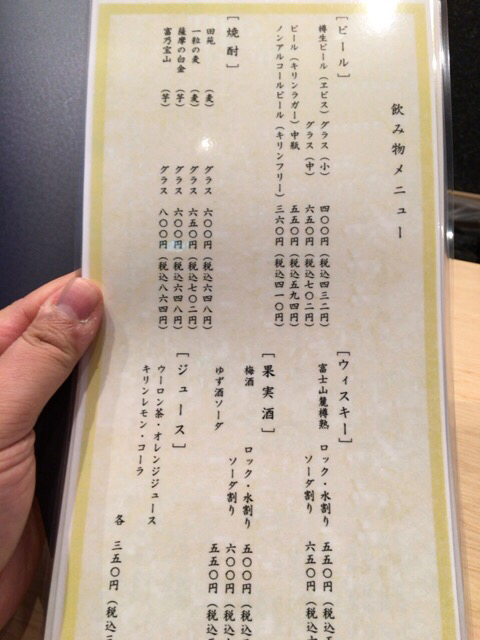 飲み物メニュー
［ビール］
樽生ビール（エビス）グラス（小） 四〇〇円（税込四三二円）
グラス（中） 六五〇円（税込七〇二円）
ビール（キリンラガー）中瓶 五五〇円（税込五九四円）
ノンアルコールビール（キリンフリー） 三六〇円（税込四一〇円）
［焼酎］
田苑 （麦） グラス 六〇〇円（税込六四八円）
一粒の麦 （麦） グラス 六五〇円（税込七〇二円）
薩摩の白金 （芋） グラス 六〇〇円（税込六四八円）
富乃宝山 （芋） グラス 八〇〇円（税込八六四円）
［ウィスキー］
富士山麓樽熟 ロック・水割り 五五〇円（税込五
ソーダ割り 六五〇円（税込
［果実酒］
梅酒 ロック・水割り 五〇〇円（税込
ソーダ割り 六〇〇円（税込
ゆず酒ソーダ 五五〇円（税込
［ジュース］
ウーロン茶・オレンジジュース
キリンレモン・コーラ
各 三五〇円（税込三